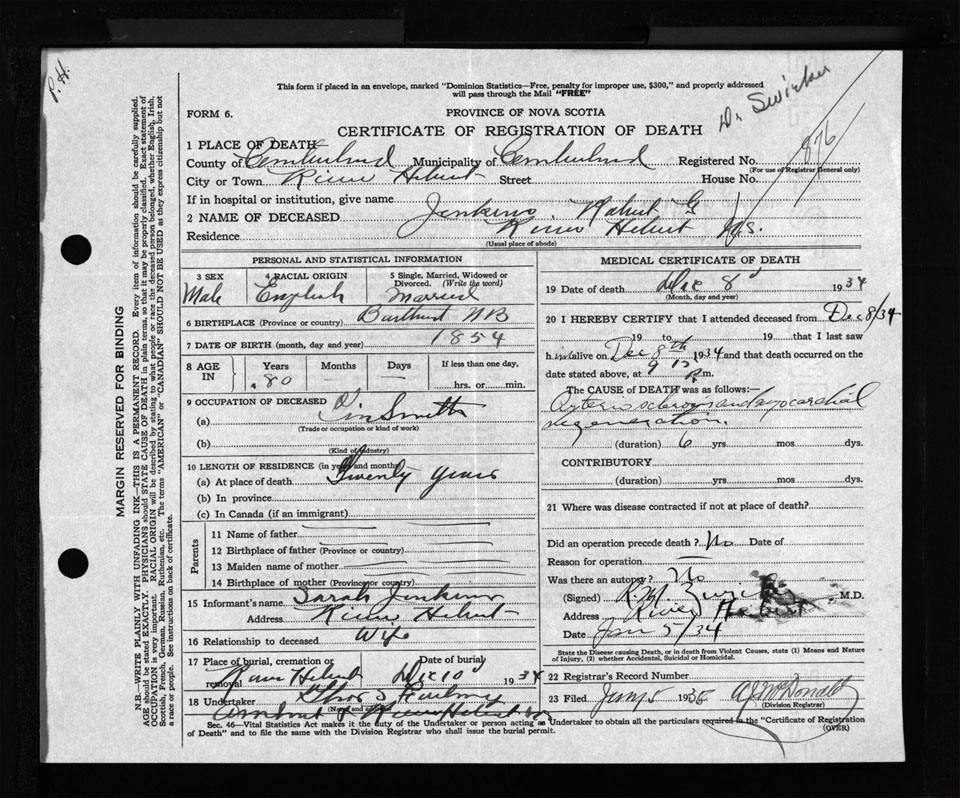 P.H.
This form if placed in an envelope, marked "Dominion Statistics—Free, penalty for improper use, $300," and properly addressed
will pass through the Mail "FREE"
Dr Swicker
FORM 6.
PROVINCE OF NOVA SCOTIA
CERTIFICATE OF REGISTRATION OF DEATH
876
1 PLACE OF DEATH
County of Cumberland Municipality of Cumberland Registered No.
(For use of Registrar General only)
City or Town River Hebert Street House No.
If in hospital or institution, give name
2 NAME OF DECEASED Jenkins, Robert G
Residence River Hebert N.S.
(Usual place of abode)
PERSONAL AND STATISTICAL INFORMATION
3 SEX 4 RACIAL ORIGIN 5 Single, Married, Widowed or Divorced. (Write the word)
Male English Married
6 BIRTHPLACE (Province or country) Bathurst NB
7 DATE OF BIRTH (month, day and year) 1854
8 AGE IN Years Months Days If less than one day,
80 — — hrs. or min.
9 OCCUPATION OF DECEASED
(a) Tin Smith
(Trade or occupation or kind of work)
(b)
(Kind of industry)
10 LENGTH OF RESIDENCE (in years and months)
(a) At place of death Twenty years
(b) In province
(c) In Canada (if an immigrant)
Parents
11 Name of father
12 Birthplace of father (Province or country)
13 Maiden name of mother
14 Birthplace of mother (Province or country)
15 Informant's name Sarah Jenkins
Address River Hebert
16 Relationship to deceased Wife
17 Place of burial, cremation or removal Date of burial
River Hebert Dec 10 1934
18 Undertaker
(Name and address)
MEDICAL CERTIFICATE OF DEATH
19 Date of death Dec 8 1934
(Month, day and year)
20 I HEREBY CERTIFY that I attended deceased from Dec 8/34
19 to 19 that I last saw
h alive on Dec 8th 1934 and that death occurred on
date stated above, at 9 P.m.
The CAUSE OF DEATH was as follows:
Arterio sclerosis and myocardial
degeneration.
(duration) 6 yrs. mos. dys.
CONTRIBUTORY
(duration) yrs. mos. dys.
21 Where was disease contracted if not at place of death?
Did an operation precede death? No Date of
Reason for operation —
Was there an autopsy? No
(Signed) M.D.
Address River Hebert
Date Jan 5/34
State the Disease causing Death, or in death from Violent Causes, state (1) Means and Nature
of Injury, (2) whether Accidental, Suicidal or Homicidal.
22 Registrar's Record Number
23 Filed Jany 5 1935 McDonald
(Division Registrar)
Sec. 46—Vital Statistics Act makes it the duty of the Undertaker or person acting as Undertaker to obtain all the particulars required in the "Certificate of Registration
of Death" and to file the same with the Division Registrar who shall issue the burial permit.
(OVER)
MARGIN RESERVED FOR BINDING
N.B.—WRITE PLAINLY WITH UNFADING INK—THIS IS A PERMANENT RECORD. Every item of information should be carefully supplied.
AGE should be stated EXACTLY. PHYSICIANS should STATE CAUSE OF DEATH in plain terms, so that it may be properly classified. Exact statement of
OCCUPATION is very important. RACIAL ORIGIN will be described by stating to what people or race the deceased person belonged, whether English, Irish,
Scottish, French, German, Russian, Ruthenian, etc. The terms "AMERICAN" or "CANADIAN" SHOULD NOT BE USED as they express citizenship but not
a race or people. See instructions on back of certificate.